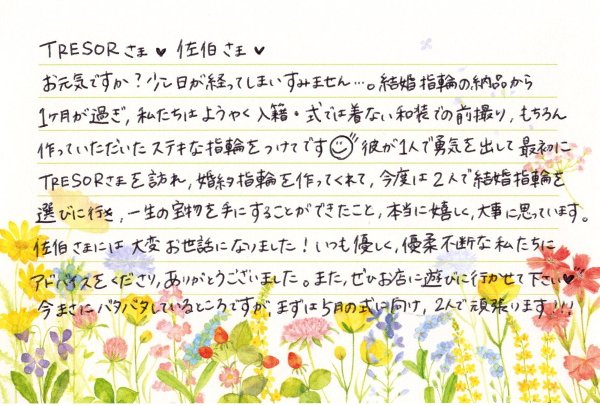 TRESORさま♥ 佐伯さま♥
お元気ですか？少し日が経ってしまいすみません…。結婚指輪の納品から
1ヶ月が過ぎ，私たちはようやく入籍・式では着ない和装での前撮り，もちろん
作っていただいたステキな指輪をつけてです☺!! 彼が1人で勇気を出して最初に
TRESORさまを訪れ，婚約指輪を作ってくれて，今度は2人で結婚指輪を
選びに行き，一生の宝物を手にすることができたこと，本当に嬉しく，大事に思っています。
佐伯さまには大変お世話になりました！いつも優しく，優柔不断な私たちに
アドバイスをくださり，ありがとうございました。また，ぜひお店に遊びに行かせて下さい♥
今まさにバタバタしているところですが，まずは5月の式に向け，2人で頑張ります!!!